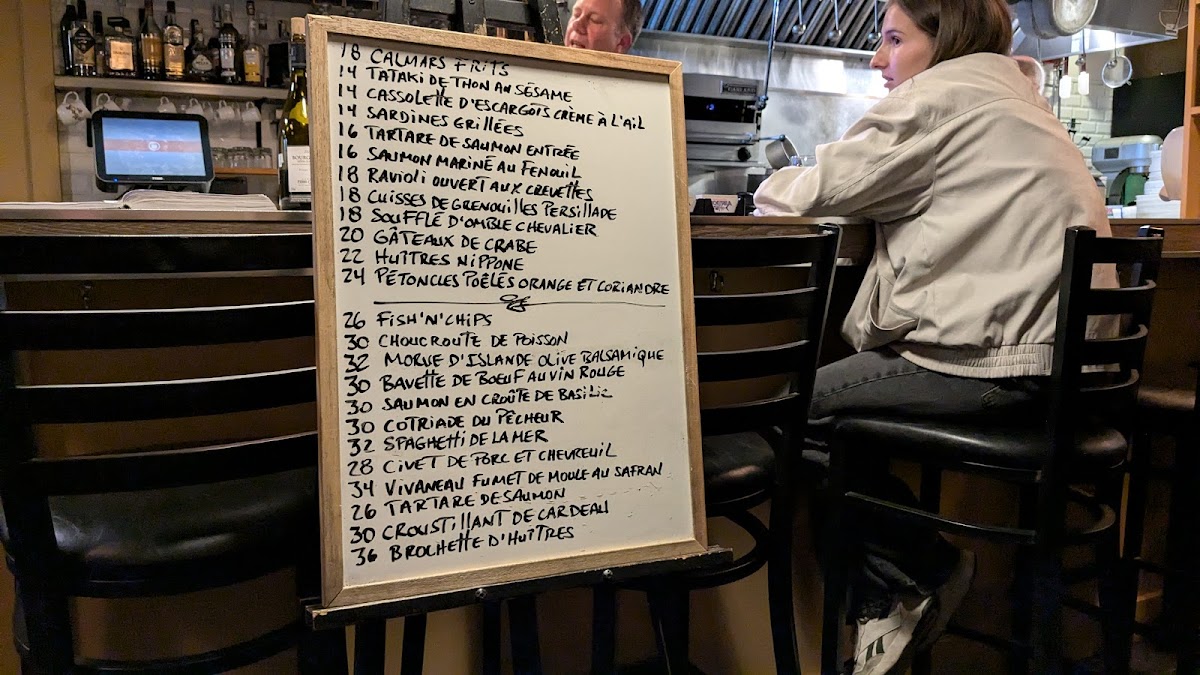 18 CALMARS FRITS
14 TATAKI DE THON AU SÉSAME
14 CASSOLETTE D'ESCARGOTS CRÈME À L'AIL
14 SARDINES GRILLÉES
16 TARTARE DE SAUMON ENTRÉE
16 SAUMON MARINÉ AU FENOUIL
18 RAVIOLI OUVERT AUX CREVETTES
18 CUISSES DE GRENOUILLES PERSILLADE
18 SOUFFLÉ D'OMBLE CHEVALIER
20 GÂTEAUX DE CRABE
22 HUÎTRES NIPPONE
24 PÉTONCLES POÊLÉS ORANGE ET CORIANDRE
26 FISH'N'CHIPS
30 CHOUCROUTE DE POISSON
32 MORUE D'ISLANDE OLIVE BALSAMIQUE
30 BAVETTE DE BOEUF AU VIN ROUGE
30 SAUMON EN CROÛTE DE BASILIC
30 COTRIADE DU PÊCHEUR
32 SPAGHETTI DE LA MER
28 CIVET DE PORC ET CHEVREUIL
34 VIVANEAU FUMET DE MOULE AU SAFRAN
26 TARTARE DE SAUMON
30 CROUSTILLANT DE CARDEAU
36 BROCHETTE D'HUÎTRES